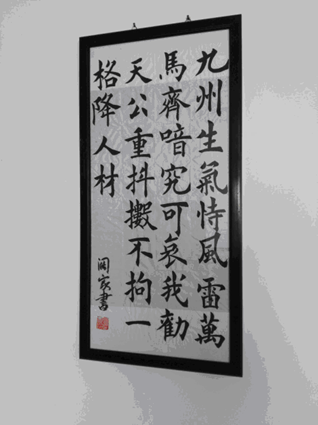 九州生氣恃風雷萬
馬齊喑究可哀我勸
天公重抖擻不拘一
格降人材
書